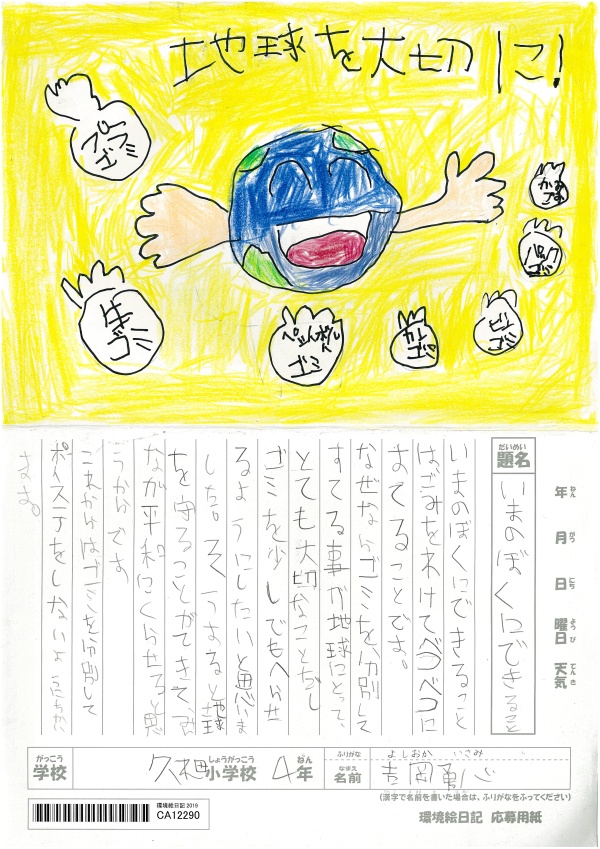 地球を大切に!
プラ
ゴミ
パック
ゴミ
生
ゴミ
ペットボトル
ゴミ
カン
ゴミ
ビン
ゴミ
年 ねん
月 がつ
日 にち
曜日 ようび
天気 てんき
だいめい
題名
いまのぼくにできること
いまのぼくにできること
は、ごみをわけてべつべつに
すてることです。
なぜならゴミを分別して
すてる事が地球にとって、
とても大切なことだし
ゴミを少しでもへらせ
るようにしたいと思いま
した。そうすると地球
を守ることができて、み
なが平和にくらせると思
うからです
これからはゴミを分別して
ポイステをしないようにちかい
ます。
がっこう しょうがっこう ねん ふりがな よしおか いさみ
学校 久 小学校 4年 なまえ 名前 吉岡勇心
(漢字で名前を書いた場合は、ふりがなをふってください)
環境絵日記 2019
CA12290
環境絵日記 応募用紙